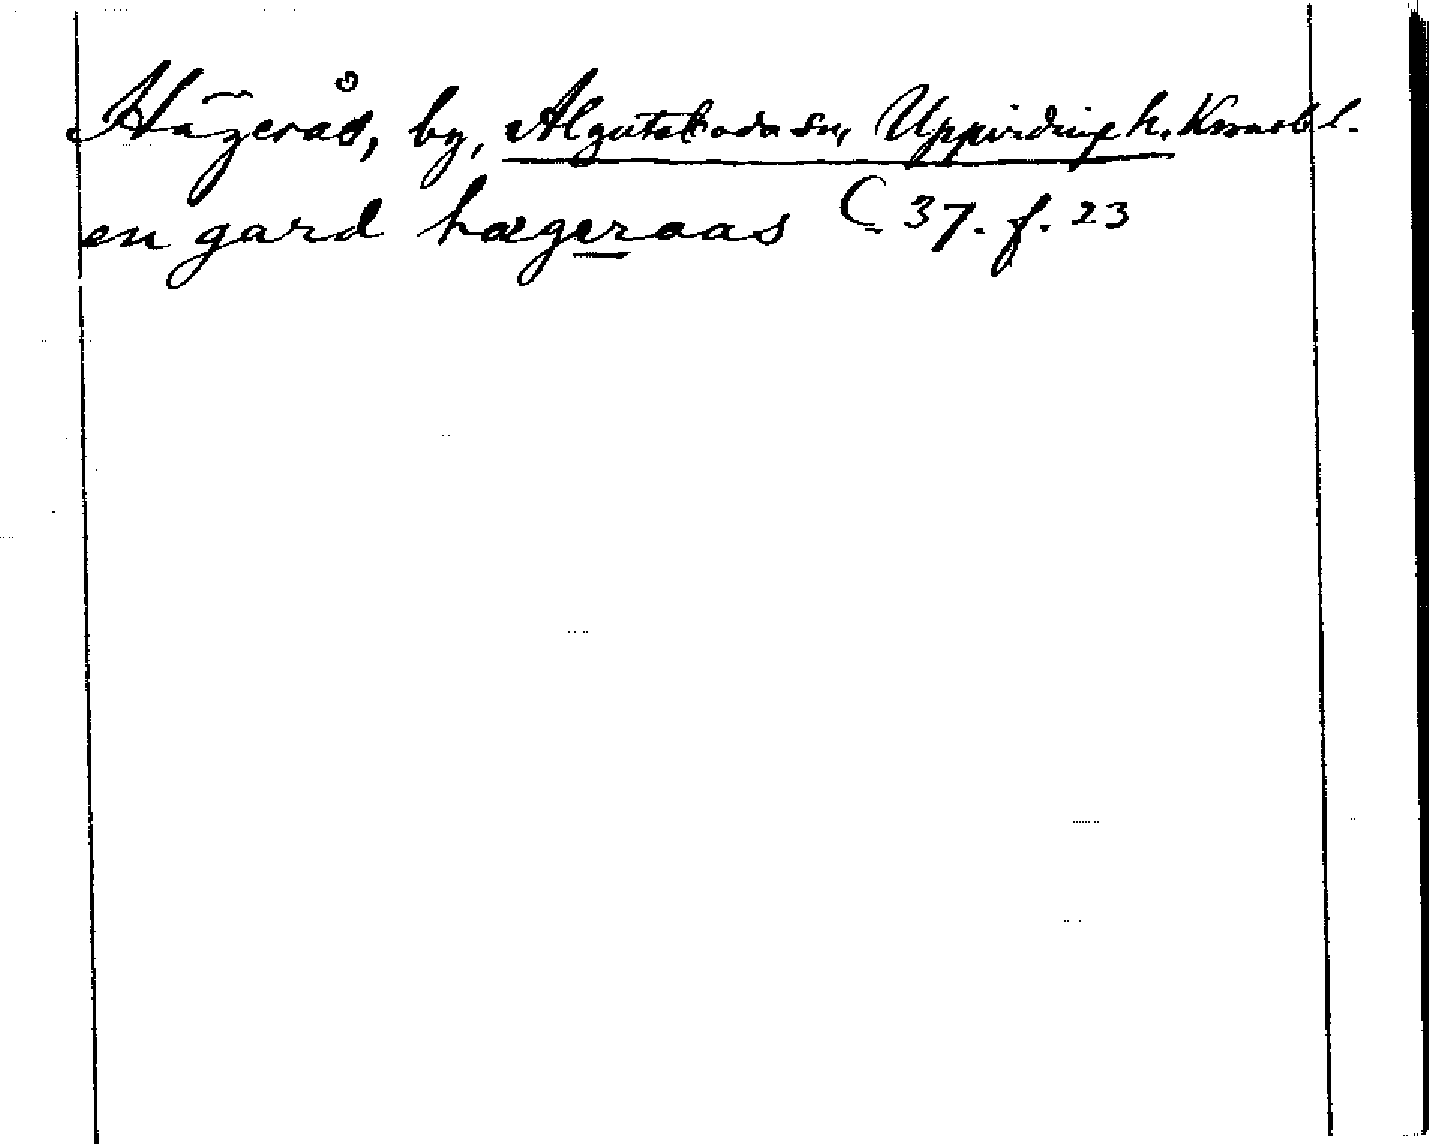 Hägerås, by, Algutsboda sn, Uppvidinge h. Kronob l.
en gard hægeraas C. 37. f. 23